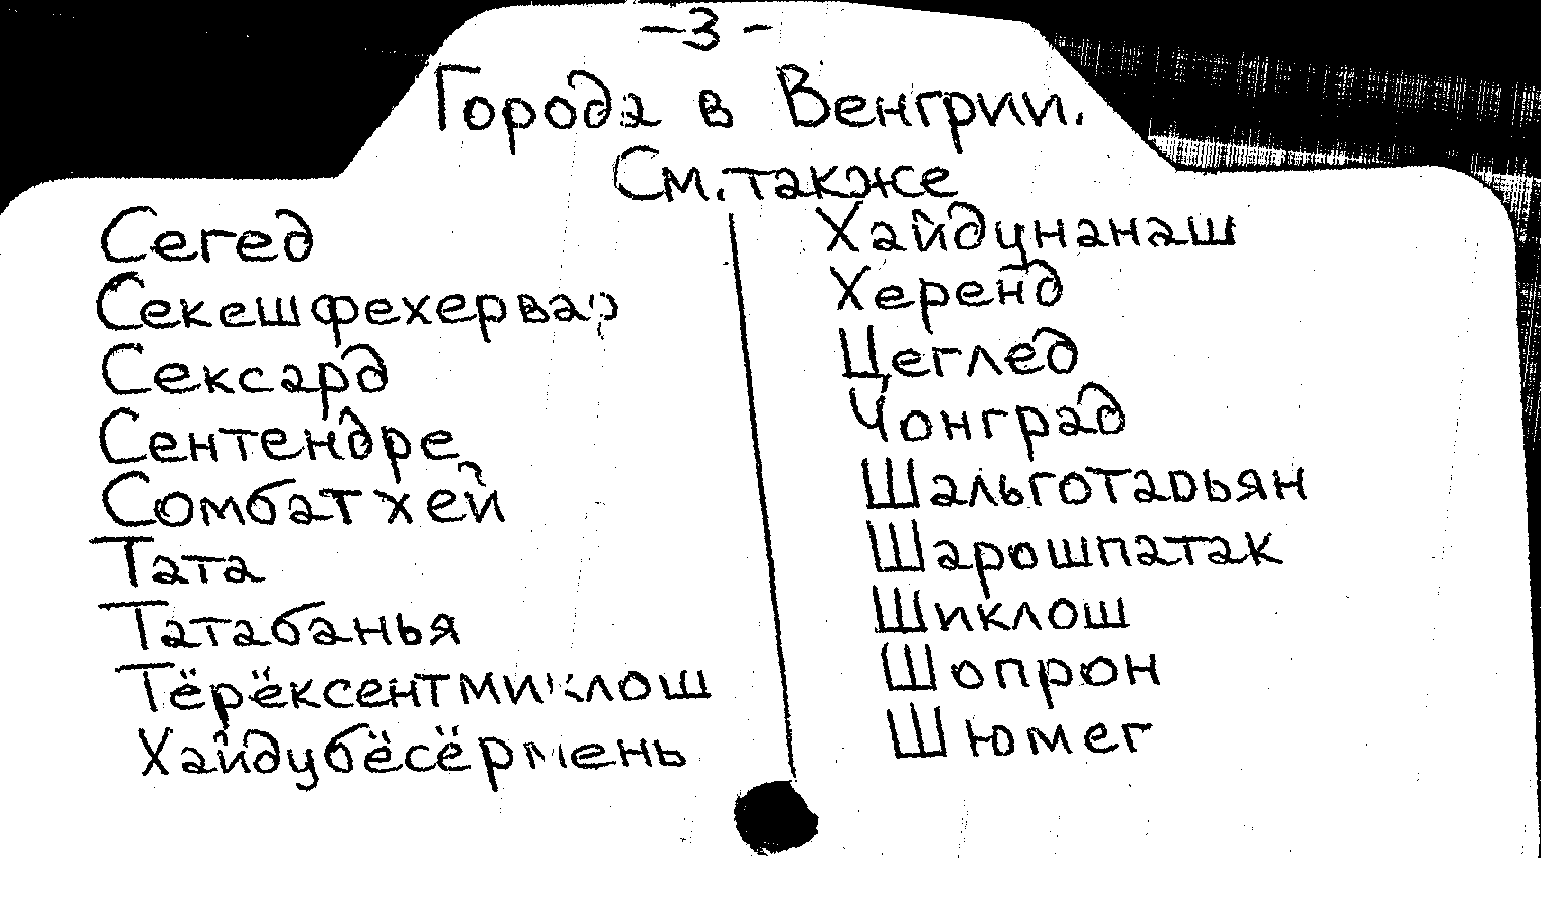 -3-
Города в Венгрии.
См. также
Сегед
Секешфехервар
Сексард
Сентендре
Сомбатхей
Тата
Татабанья
Тёрёксентмиклош
Хайдубёсёрмень
Хайдунанаш
Херенд
Цеглед
Чонград
Шальготарьян
Шарошпатак
Шиклош
Шопрон
Шюмег